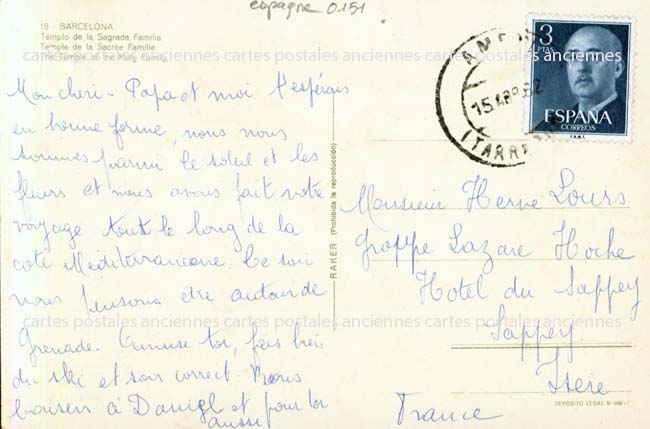 espagne 0151
18 - BARCELONA
Templo de la Sagrada Familia
Temple de la Sacrée Famille
The Temple of the Holy Family
Mon cheri - Papa et moi t'espérons
en bonne forme, nous nous
sommes parmi le soleil et les
fleurs et nous avons fait notre
voyage tout le long de la
cote Mediterraneenne. Ce soir
nous pensons être autour de
Grenade. Amuse toi, fais bien
du ski et sois correct. Bons
baisers à Daniel et pour toi
aussi
RAKER (Prohibida la reproducción)
3
PTAS
ESPAÑA
CORREOS
F.N.M.T.
15 ABR 62
(TARRA
Monsieur Herve Lours
Groppe Lazare Hoche
Hotel du Sappey
Sappey
Isere
France
DEPOSITO LEGAL B-
cartes postales anciennes cartes postales anciennes cartes postales anciennes
cartes postales anciennes cartes postales anciennes cartes postales anciennes
cartes postales anciennes cartes postales anciennes cartes postales anciennes